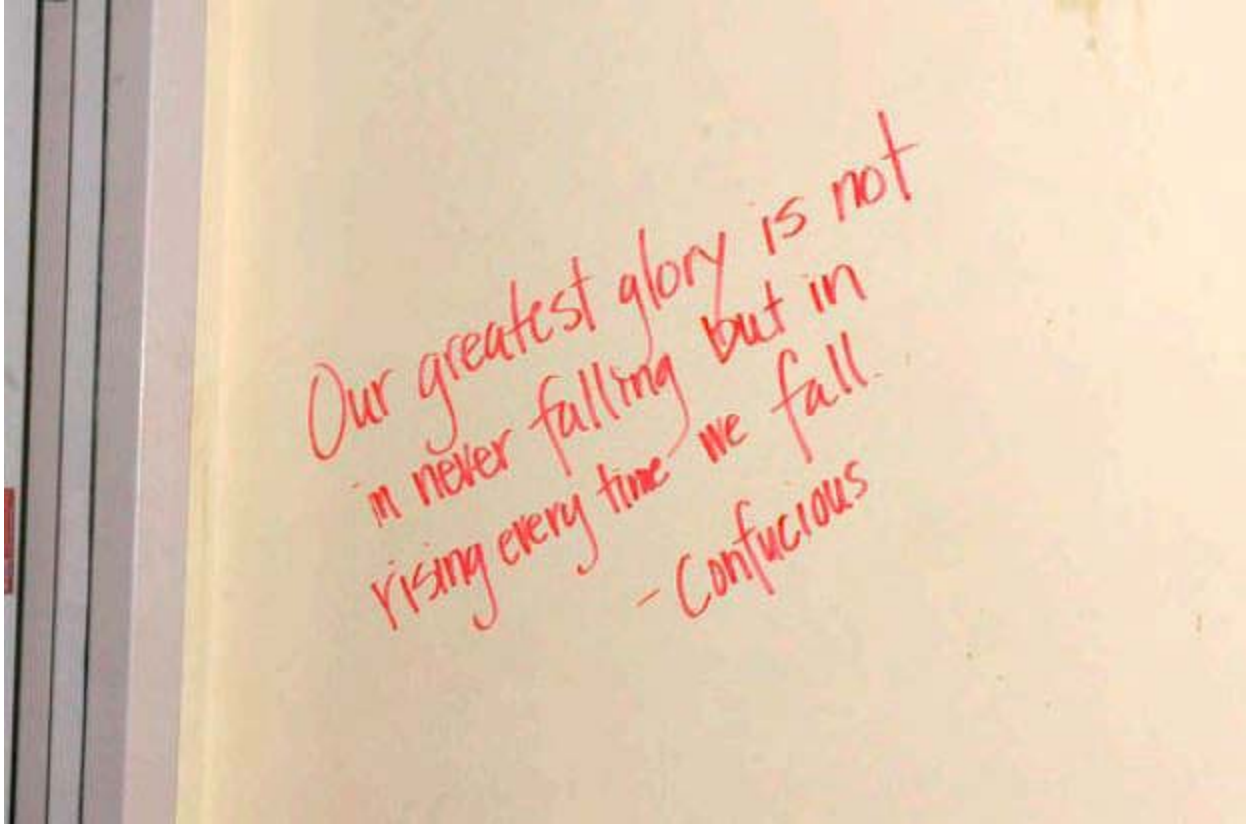 Our greatest glory is not
in never falling but in
rising every time we fall.
- Confucious